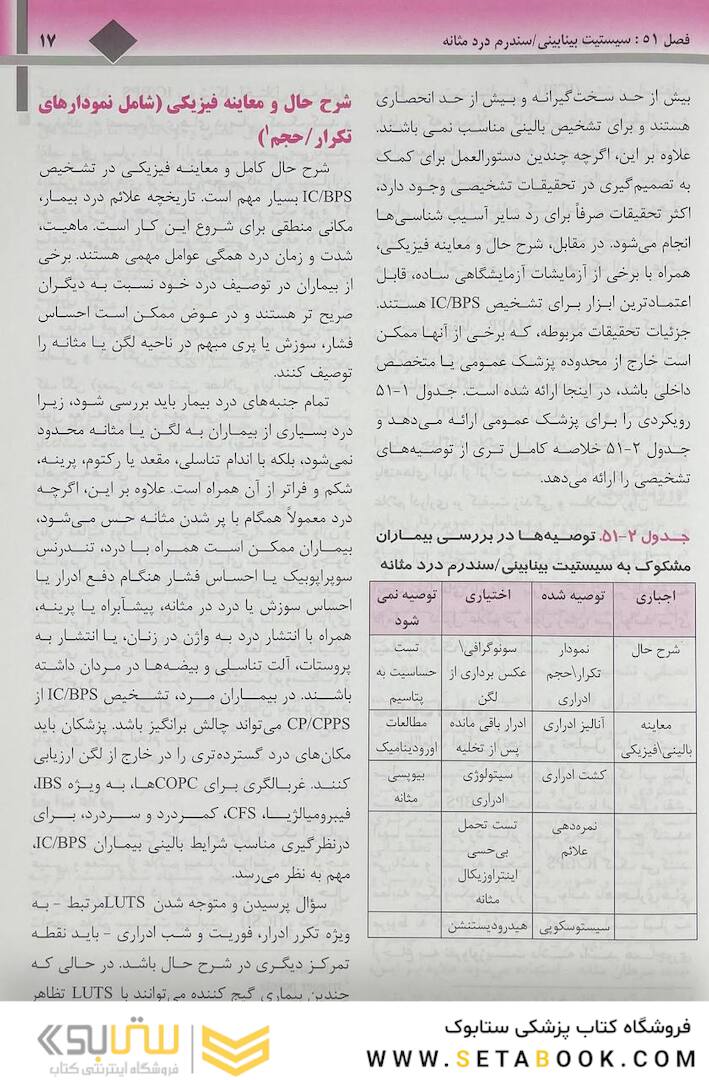 فصل ۵۱: سیستیت بینابینی/سندرم درد مثانه
۱۷
بیش از حد سخت‌گیرانه و بیش از حد انحصاری
هستند و برای تشخیص بالینی مناسب نمی باشند.
علاوه بر این، اگرچه چندین دستورالعمل برای کمک
به تصمیم‌گیری در تحقیقات تشخیصی وجود دارد،
اکثر تحقیقات صرفاً برای رد سایر آسیب شناسی‌ها
انجام می‌شود. در مقابل، شرح حال و معاینه فیزیکی،
همراه با برخی از آزمایشات آزمایشگاهی ساده، قابل
اعتمادترین ابزار برای تشخیص IC/BPS هستند.
جزئیات تحقیقات مربوطه، که برخی از آنها ممکن
است خارج از محدوده پزشک عمومی یا متخصص
داخلی باشد، در اینجا ارائه شده است. جدول ۱-۵۱
رویکردی را برای پزشک عمومی ارائه می‌دهد و
جدول ۲-۵۱ خلاصه کامل تری از توصیه‌های
تشخیصی را ارائه می‌دهد.
جدول ۲-۵۱. توصیه‌ها در بررسی بیماران
مشکوک به سیستیت بینابینی/سندرم درد مثانه
اجباری توصیه شده اختیاری توصیه نمی
شود
شرح حال نمودار سونوگرافی\ تست
تکرار\حجم عکس برداری از حساسیت به
ادراری لگن پتاسیم
معاینه آنالیز ادراری ادرار باقی مانده مطالعات
بالینی\فیزیکی پس از تخلیه اورودینامیک
کشت ادراری سیتولوژی بیوپسی
ادراری مثانه
نمره‌دهی تست تحمل
علائم بی‌حسی
اینتراوزیکال
مثانه
سیستوسکوپی هیدرودیستنشن
شرح حال و معاینه فیزیکی (شامل نمودارهای
تکرار/حجم۱)
شرح حال کامل و معاینه فیزیکی در تشخیص
IC/BPS بسیار مهم است. تاریخچه علائم درد بیمار،
مکانی منطقی برای شروع این کار است. ماهیت،
شدت و زمان درد همگی عوامل مهمی هستند. برخی
از بیماران در توصیف درد خود نسبت به دیگران
صریح تر هستند و در عوض ممکن است احساس
فشار، سوزش یا پری مبهم در ناحیه لگن یا مثانه را
توصیف کنند.
تمام جنبه‌های درد بیمار باید بررسی شود، زیرا
درد بسیاری از بیماران به لگن یا مثانه محدود
نمی‌شود، بلکه با اندام تناسلی، مقعد یا رکتوم، پرینه،
شکم و فراتر از آن همراه است. علاوه بر این، اگرچه
درد معمولاً همگام با پر شدن مثانه حس می‌شود،
بیماران ممکن است همراه با درد، تندرنس
سوپراپوبیک یا احساس فشار هنگام دفع ادرار یا
احساس سوزش یا درد در مثانه، پیشآبراه یا پرینه،
همراه با انتشار درد به واژن در زنان، یا انتشار به
پروستات، آلت تناسلی و بیضه‌ها در مردان داشته
باشند. در بیماران مرد، تشخیص IC/BPS از
CP/CPPS می‌تواند چالش برانگیز باشد. پزشکان باید
مکان‌های درد گسترده‌تری را در خارج از لگن ارزیابی
کنند. غربالگری برای COPCها، به ویژه IBS،
فیبرومیالژیا، CFS، کمردرد و سردرد، برای
درنظرگیری مناسب شرایط بالینی بیماران IC/BPS،
مهم به نظر می‌رسد.
سؤال پرسیدن و متوجه شدن LUTSمرتبط - به
ویژه تکرر ادرار، فوریت و شب ادراری - باید نقطه
تمرکز دیگری در شرح حال باشد. در حالی که
چندین بیماری گیج کننده می‌توانند با LUTS تظاهر
فروشگاه کتاب پزشکی ستابوک
WWW.SETABOOK.COM
ستابوک
فروشگاه اینترنتی کتاب